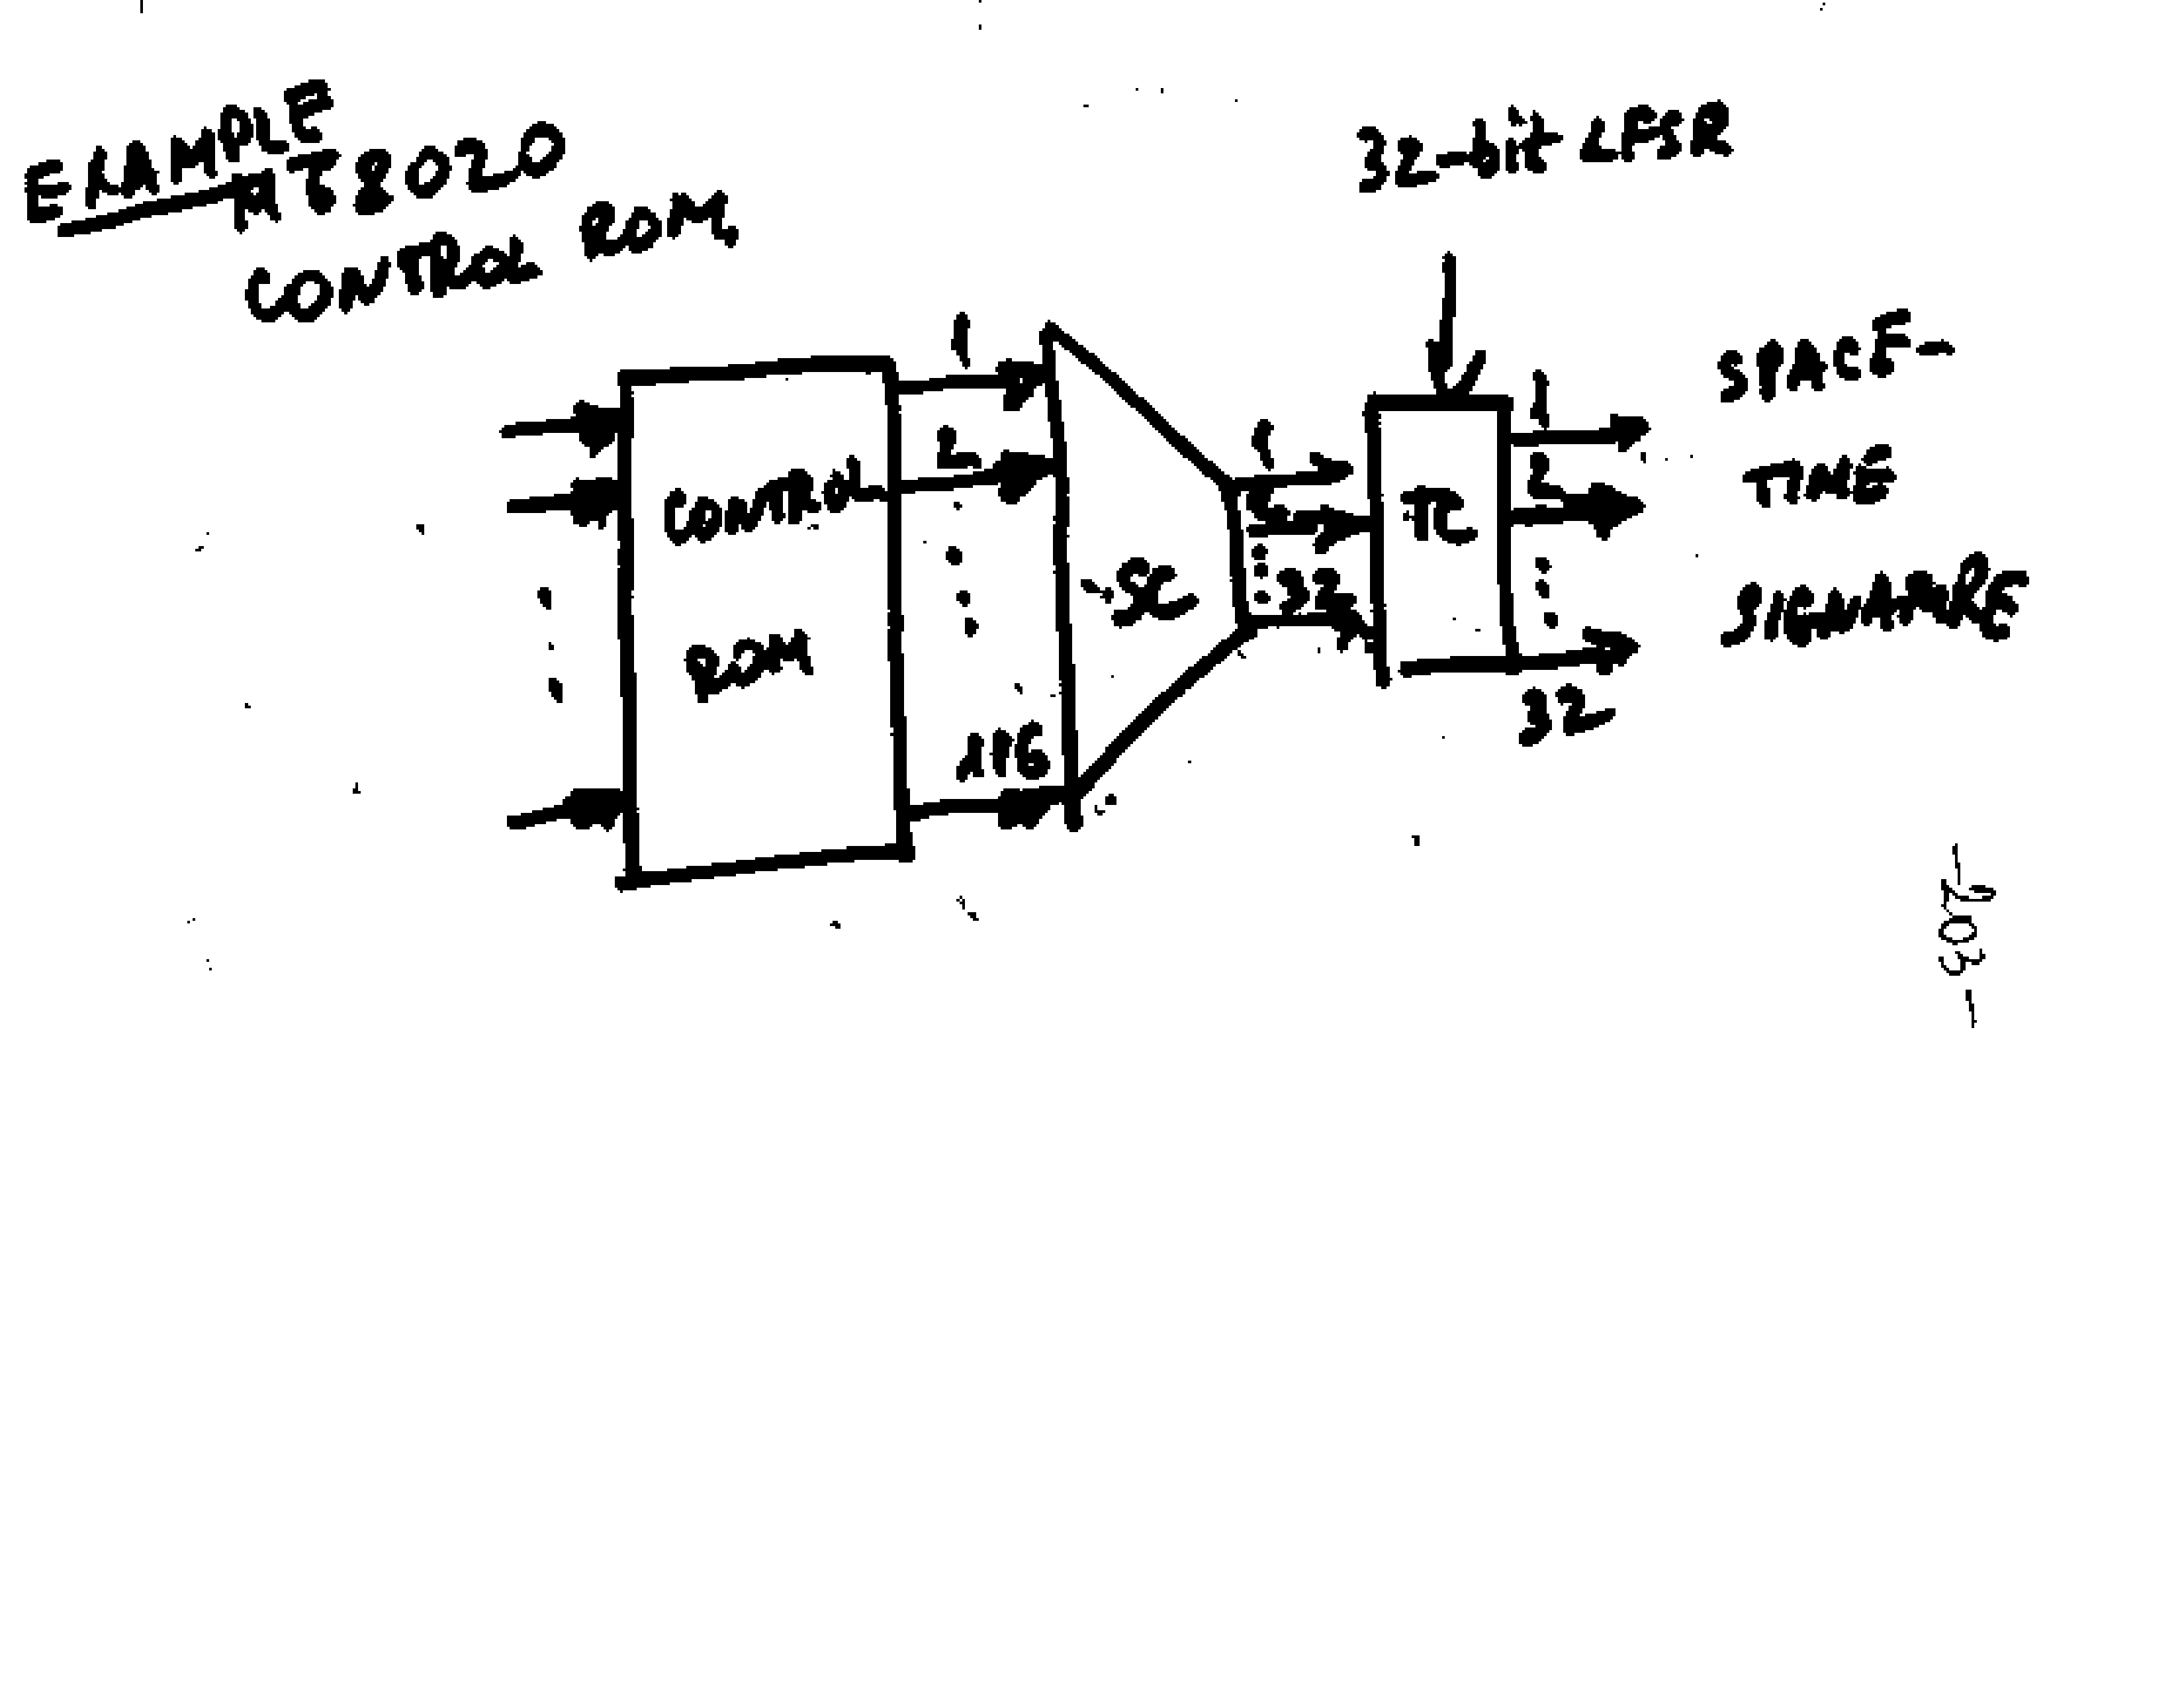 EXAMPLE
M68020
CONTROL ROM
32-bit LFSR
1
2
116
CONTROL
ROM
SC
1
2
32
TC
1
2
32
SPACE-
TIME
SIGNATURE
-203-